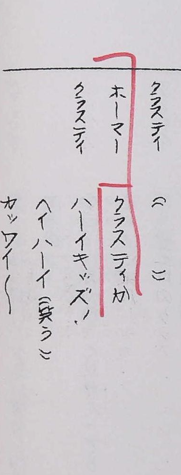 クラスティ （　　）
ホーマー クラスティか
クラスティ ハーイキッズ！
ヘイハーイ（笑う）
カッワイ〜